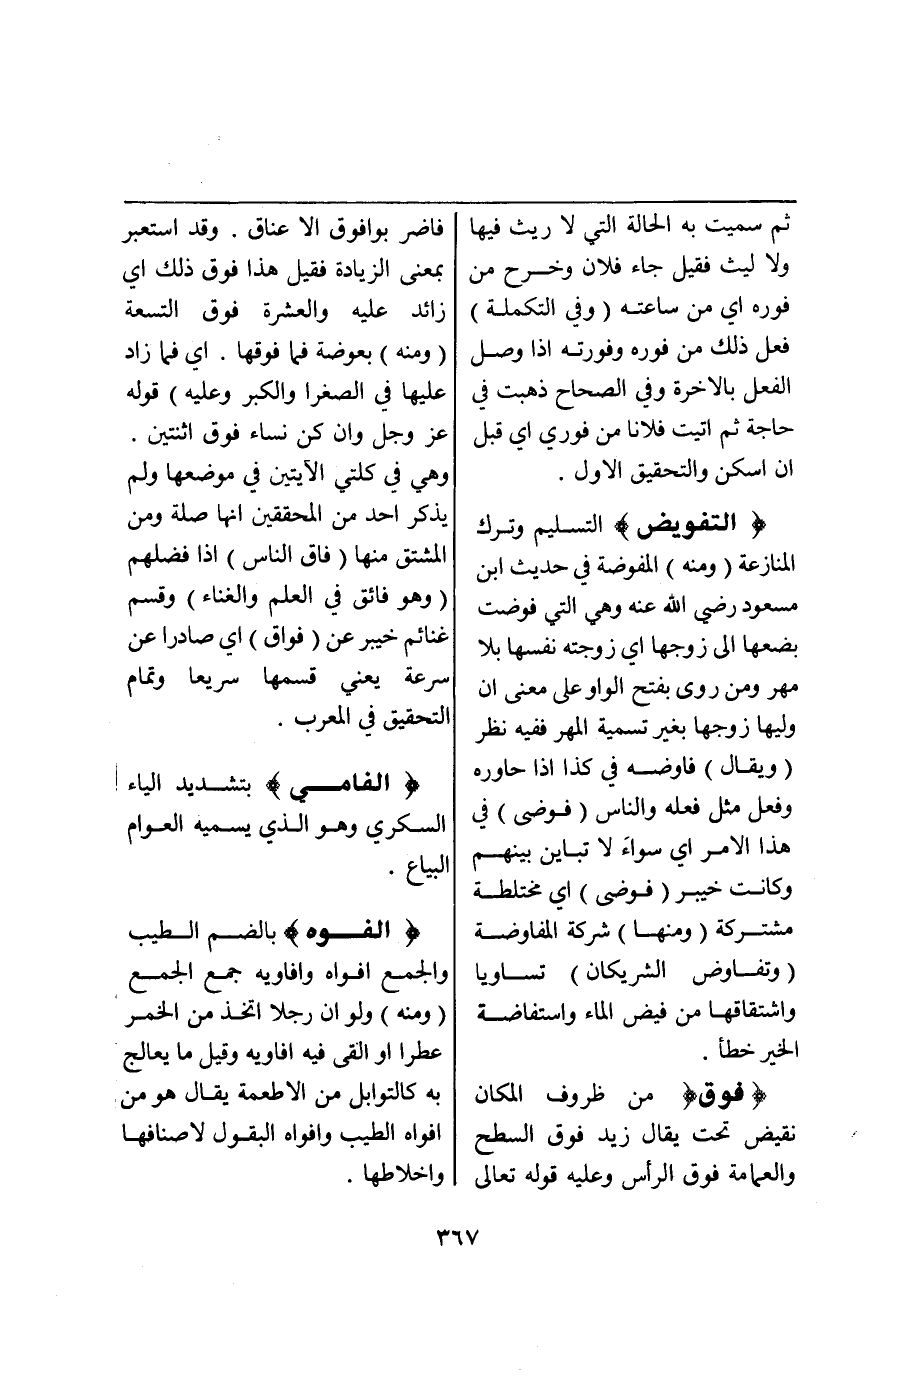 ثم سميت به الحالة التي لا ريث فيها
ولا ليث فقيل جاء فلان وخرج من
فوره اي من ساعته ( وفي التكملة )
فعل ذلك من فوره وفورته اذا وصل
الفعل بالاخرة وفي الصحاح ذهبت في
حاجة ثم اتيت فلانا من فوري اي قبل
ان اسكن والتحقيق الاول .
﴿ التفويض ﴾ التسليم وترك
المنازعة ( ومنه ) المفوضة في حديث ابن
مسعود رضي الله عنه وهي التي فوضت
بضعها الى زوجها اي زوجته نفسها بلا
مهر ومن روى بفتح الواو على معنى ان
وليها زوجها بغير تسمية المهر ففيه نظر
( ويقال ) فاوضه في كذا اذا حاوره
وفعل مثل فعله والناس ( فوضى ) في
هذا الامر اي سواءَ لا تباين بينهم
وكانت خيبر ( فوضى ) اي مختلطة
مشتركة ( ومنها ) شركة المفاوضة
( وتفاوض الشريكان ) تساويا
واشتقاقها من فيض الماء واستفاضة
الخير خطأ .
﴿ فوق﴾ من ظروف المكان
نقيض تحت يقال زيد فوق السطح
والعمامة فوق الرأس وعليه قوله تعالى
فاضر بوافوق الا عناق . وقد استعير
بمعنى الزيادة فقيل هذا فوق ذلك اي
زائد عليه والعشرة فوق التسعة
( ومنه ) بعوضة فما فوقها . اي فما زاد
عليها في الصغرا والكبر وعليه ) قوله
عز وجل وان كن نساء فوق اثنتين .
وهي في كلتي الآيتين في موضعها ولم
يذكر احد من المحققين انها صلة ومن
المشتق منها ( فاق الناس ) اذا فضلهم
( وهو فائق في العلم والغناء ) وقسم
غنائم خيبر عن ( فواق ) اي صادرا عن
سرعة يعني قسمها سريعا وتمام
التحقيق في المعرب .
﴿ الفامي ﴾ بتشديد الياء
السكري وهو الذي يسميه العوام
البياع .
﴿ الفوه ﴾ بالضم الطيب
والجمع افواه وافاويه جمع الجمع
( ومنه ) ولو ان رجلا اتخذ من الخمر
عطرا او القى فيه افاويه وقيل ما يعالج
به كالتوابل من الاطعمة يقال هو من
افواه الطيب وافواه البقول لاصنافها
واخلاطها .
٣٦٧